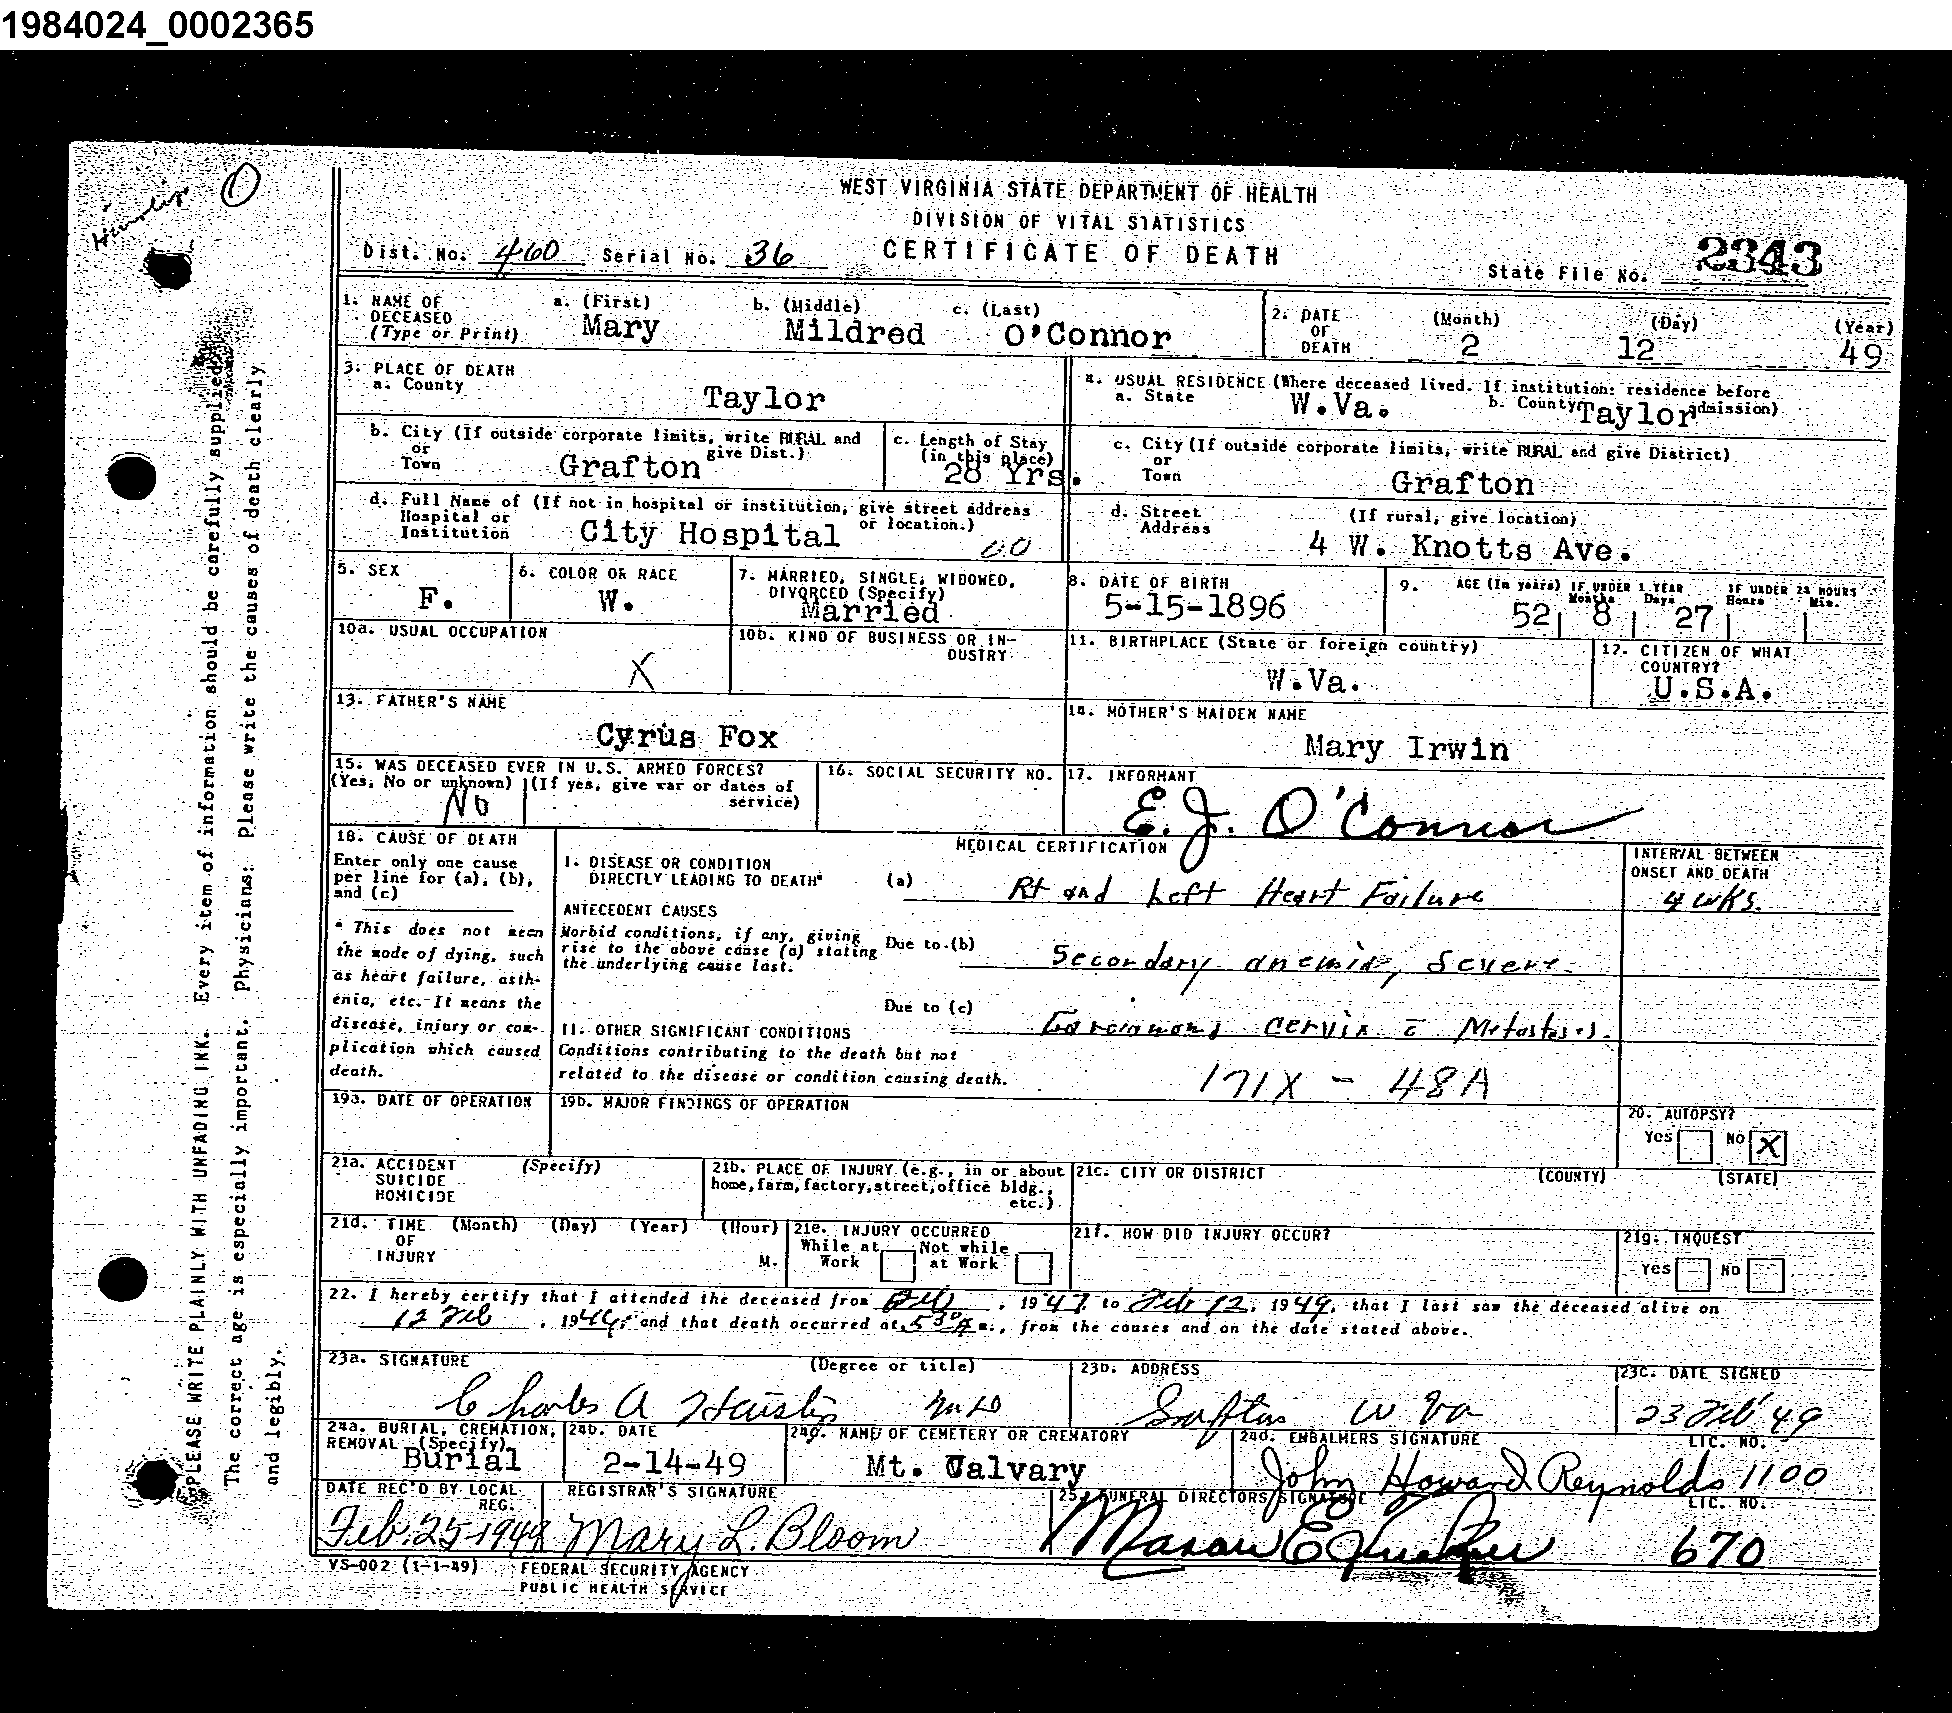 1984024_0002365
WEST VIRGINIA STATE DEPARTMENT OF HEALTH
DIVISION OF VITAL STATISTICS
Dist. No. 460 Serial No. 36 CERTIFICATE OF DEATH State File No. 2343
1. NAME OF DECEASED (Type or Print) a. (First) b. (Middle) c. (Last)
Mary Mildred O'Connor
2. DATE OF DEATH (Month) (Day) (Year)
2 12 49
3. PLACE OF DEATH
a. County Taylor
4. USUAL RESIDENCE (Where deceased lived. If institution: residence before admission)
a. State W.Va. b. County Taylor
b. City (If outside corporate limits, write RURAL and give Dist.)
or Town Grafton
c. Length of Stay (in this place)
28 Yrs.
c. City (If outside corporate limits, write RURAL and give District)
or Town Grafton
d. Full Name of (If not in hospital or institution, give street address or location.)
Hospital or Institution City Hospital 00
d. Street Address (If rural, give location)
4 W. Knotts Ave.
5. SEX F.
6. COLOR OR RACE W.
7. MARRIED, SINGLE, WIDOWED, DIVORCED (Specify)
Married
8. DATE OF BIRTH
5-15-1896
9. AGE (In years) IF UNDER 1 YEAR Months Days IF UNDER 24 HOURS Hours Min.
52 8 27
10a. USUAL OCCUPATION
X
10b. KIND OF BUSINESS OR INDUSTRY
11. BIRTHPLACE (State or foreign country)
W.Va.
12. CITIZEN OF WHAT COUNTRY?
U.S.A.
13. FATHER'S NAME
Cyrus Fox
14. MOTHER'S MAIDEN NAME
Mary Irwin
15. WAS DECEASED EVER IN U.S. ARMED FORCES?
(Yes, No or unknown) (If yes, give war or dates of service)
No
16. SOCIAL SECURITY NO.
17. INFORMANT
E. J. O'Connor
18. CAUSE OF DEATH
Enter only one cause
per line for (a), (b),
and (c)
* This does not mean
the mode of dying, such
as heart failure, asth-
enia, etc. It means the
disease, injury or com-
plication which caused
death.
MEDICAL CERTIFICATION
INTERVAL BETWEEN ONSET AND DEATH
I. DISEASE OR CONDITION
DIRECTLY LEADING TO DEATH* (a) Rt and Left Heart Failure 4 wks.
ANTECEDENT CAUSES
Morbid conditions, if any, giving
rise to the above cause (a) stating
the underlying cause last.
Due to (b) Secondary anemia, severe
Due to (c) Carcinoma, cervix c̄ Metastases.
II. OTHER SIGNIFICANT CONDITIONS
Conditions contributing to the death but not
related to the disease or condition causing death.
171X - 48A
19a. DATE OF OPERATION
19b. MAJOR FINDINGS OF OPERATION
20. AUTOPSY?
Yes No X
21a. ACCIDENT SUICIDE HOMICIDE (Specify)
21b. PLACE OF INJURY (e.g., in or about
home, farm, factory, street, office bldg.,
etc.)
21c. CITY OR DISTRICT (COUNTY) (STATE)
21d. TIME OF INJURY (Month) (Day) (Year) (Hour) M.
21e. INJURY OCCURRED
While at Work Not while at Work
21f. HOW DID INJURY OCCUR?
21g. INQUEST
Yes No
22. I hereby certify that I attended the deceased from , 1947, to Feb 12, 1949, that I last saw the deceased alive on
12 Feb , 1949, and that death occurred at 5 30 A m., from the causes and on the date stated above.
23a. SIGNATURE (Degree or title)
Charles A MD
23b. ADDRESS
Grafton W Va
23c. DATE SIGNED
23 Feb 49
24a. BURIAL, CREMATION, REMOVAL (Specify)
Burial
24b. DATE
2-14-49
24c. NAME OF CEMETERY OR CREMATORY
Mt. Calvary
24d. EMBALMERS SIGNATURE LIC. NO.
John Howard Reynolds 1100
DATE REC'D BY LOCAL REG.
Feb. 25-1949
REGISTRAR'S SIGNATURE
Mary L. Bloom
25. FUNERAL DIRECTORS SIGNATURE LIC. NO.
670
VS-002 (1-1-49) FEDERAL SECURITY AGENCY
PUBLIC HEALTH SERVICE
PLEASE WRITE PLAINLY WITH UNFADING INK. Every item of information should be carefully supplied.
The correct age is especially important. Physicians: Please write the causes of death clearly
and legibly.